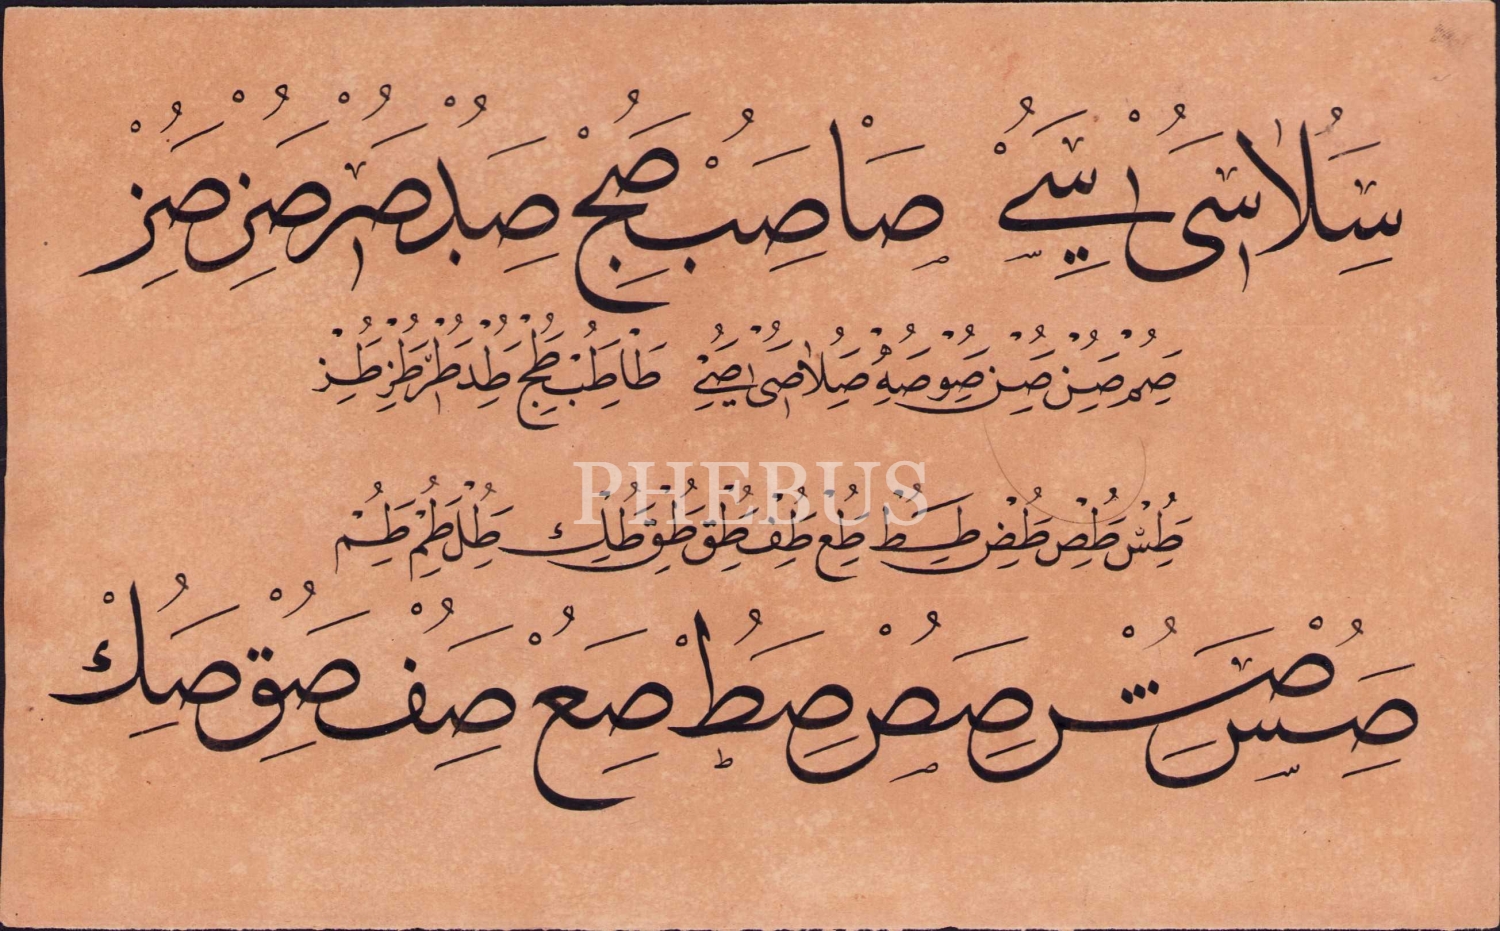 سلا سى سے صا صب صج صد صر صن صز
صم صن صن صو صه صلا صى صے طا طب طج طد طر طز طز
PHEBUS
طس طص طض طط طع طف طق طق طك طل طم طم
صس صش صص صص صط صع صف صق صك